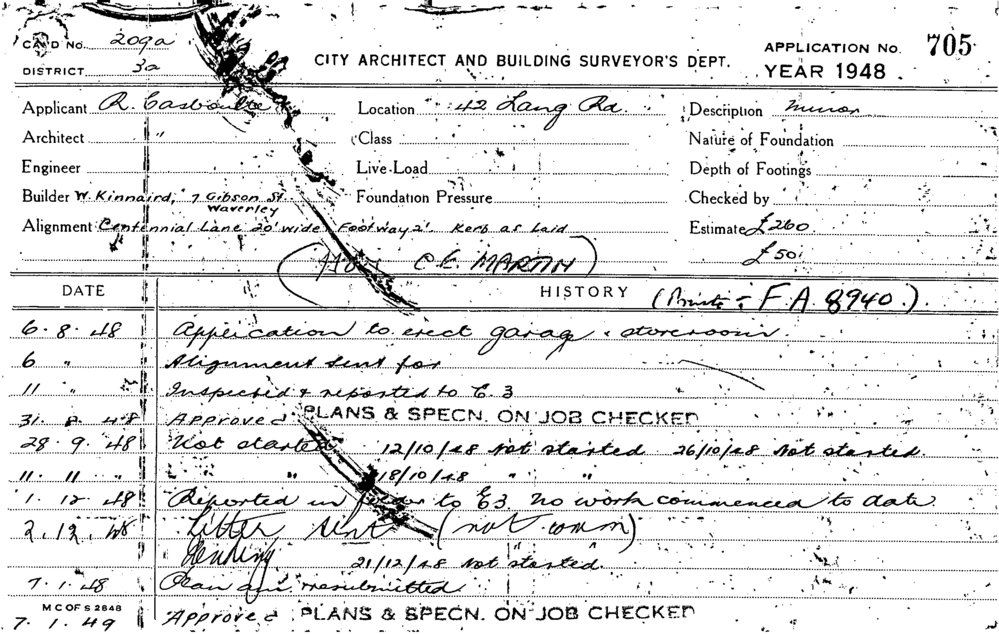 CARD No. 209a
DISTRICT 3a
CITY ARCHITECT AND BUILDING SURVEYOR'S DEPT.
APPLICATION No. 705
YEAR 1948.
Applicant R. Location 42 Lang Rd. Description minor
Architect " Class Nature of Foundation
Engineer Live Load Depth of Footings
Builder W. Kinnaird, 7 Gibson St. Waverley Foundation Pressure Checked by
Alignment Centennial Lane 20' wide Footway 2' Kerb as laid Estimate £260
C.E. MARTIN) £50
DATE HISTORY (Private - F.A. 8940.)
6.8.48 Application to erect garag & storeroom
6 " Alignment sent for
11 " Inspected & reported to E.3
31.8.48 Approved PLANS & SPECN. ON JOB CHECKED
28.9.48 Not started 12/10/48 Not started 26/10/48 Not started.
11.11 " " " 18/10/48 " "
1.12.48 Reported in to E3 no work commenced to date.
2.12.48 Letter sent (not comm)
21/12/48 Not started.
7.1.48 Plan resubmitted
M C OF S 2848
7.1.49 Approved PLANS & SPECN. ON JOB CHECKED